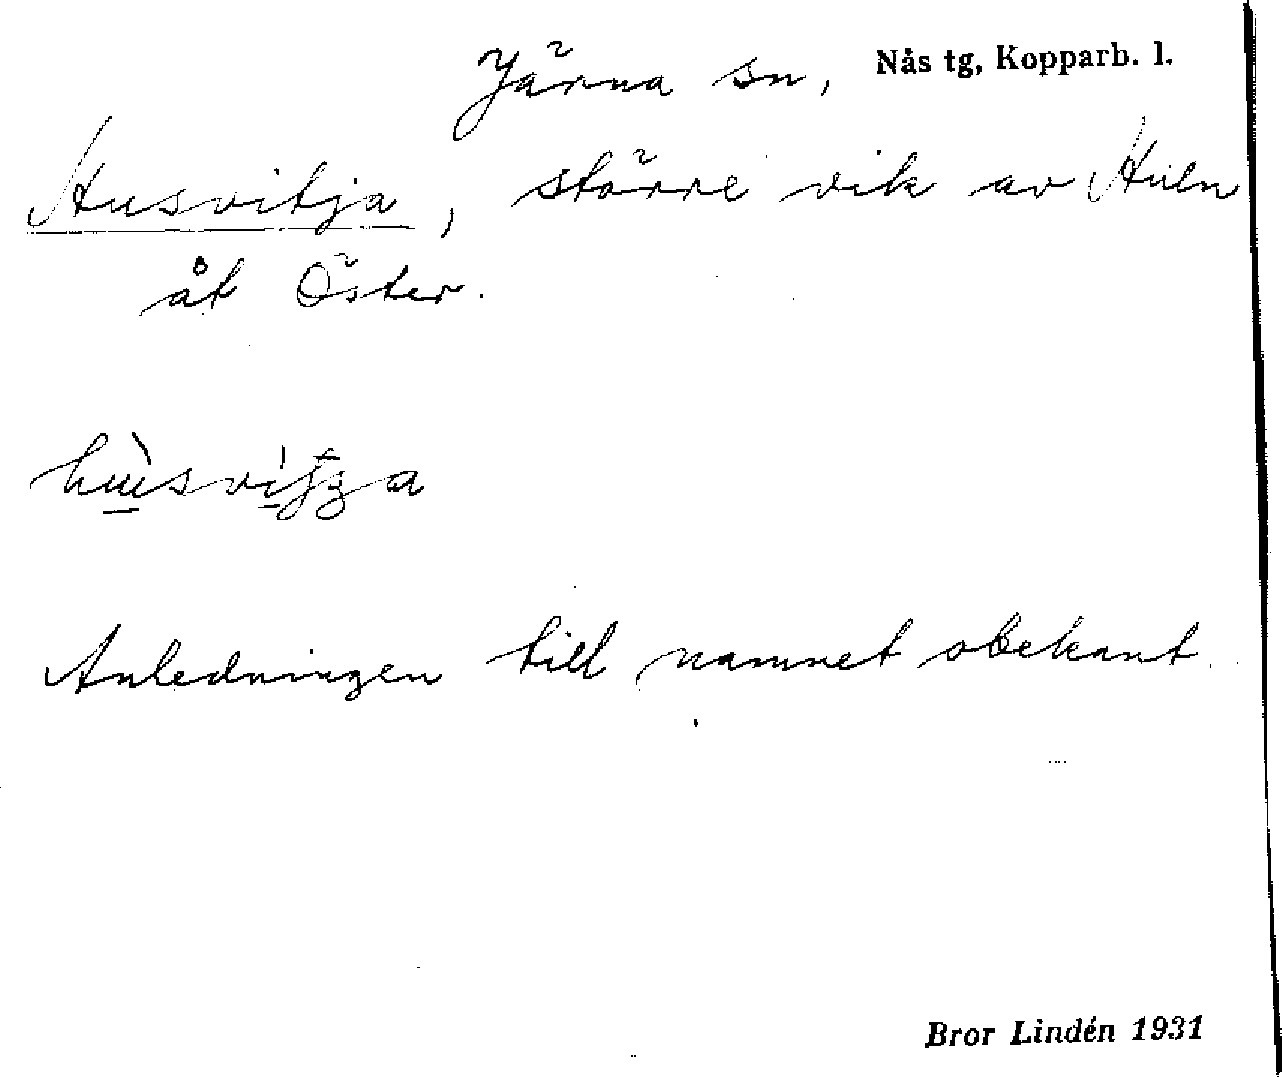 Järna sn, Nås tg, Kopparb. l.
Husvitja, större vik av Huln
åt Öster.
Anledningen till namnet obekant.
Bror Lindén 1931